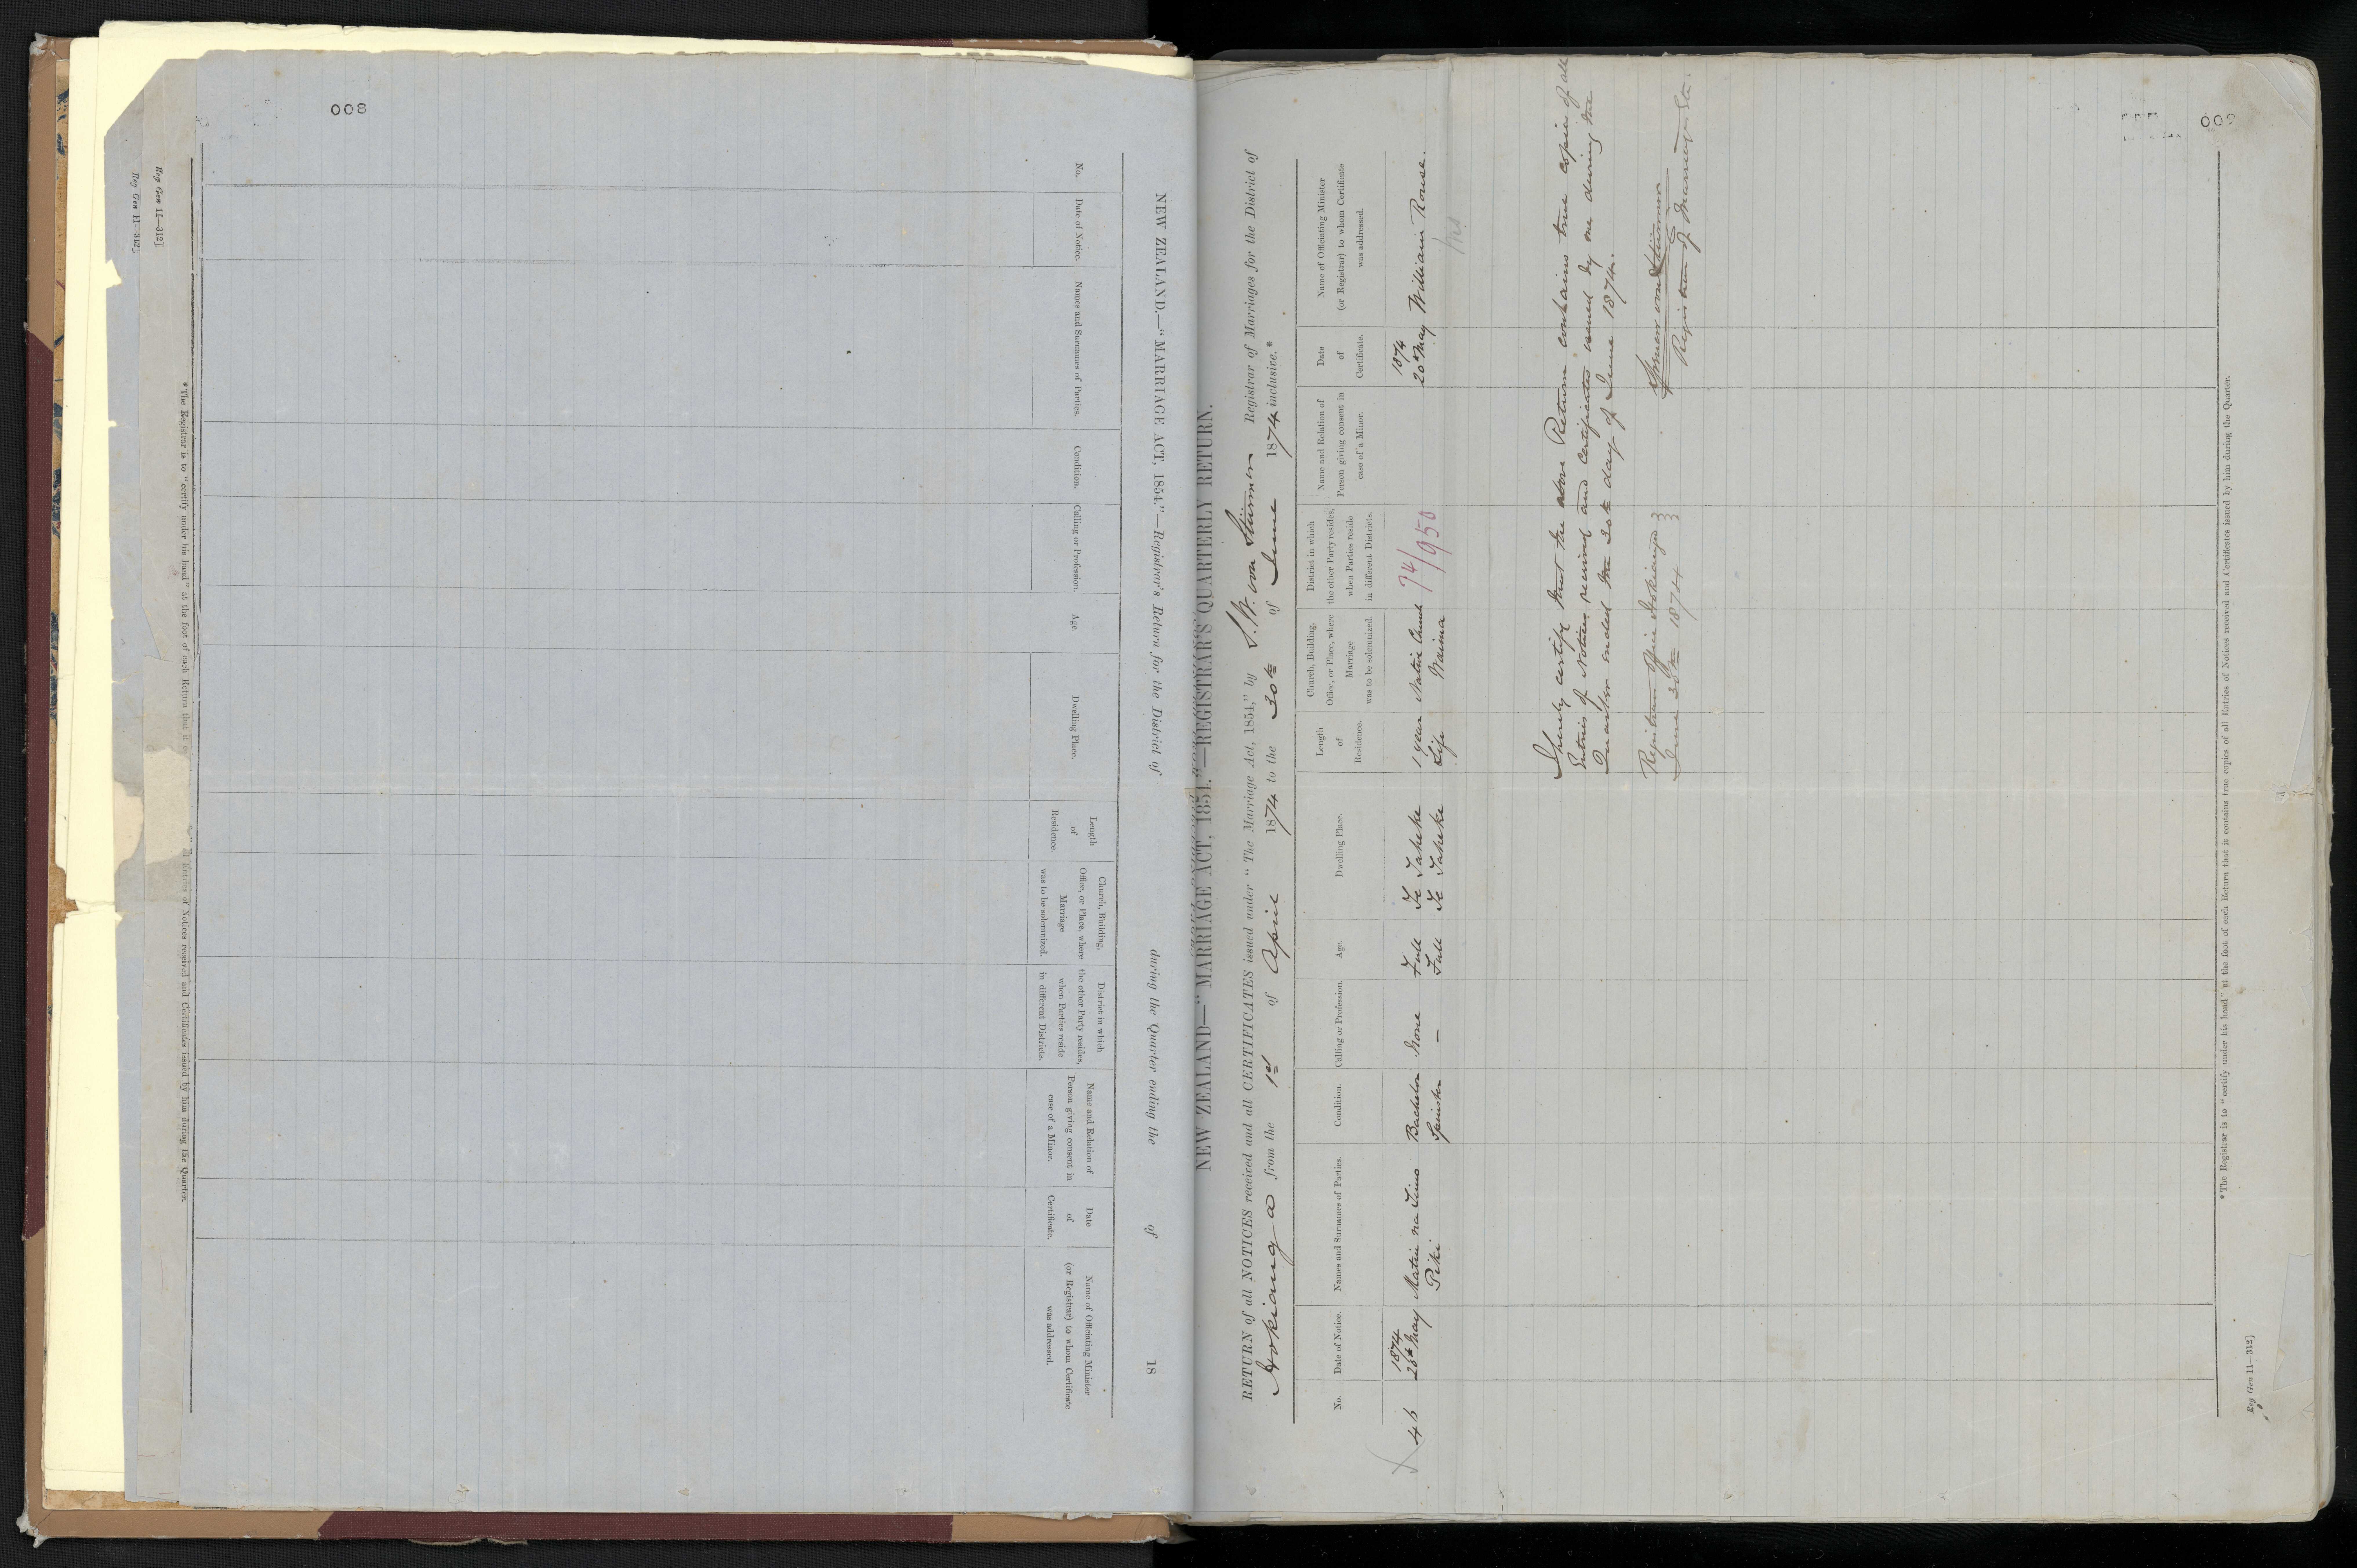 008
NEW ZEALAND.—"MARRIAGE ACT, 1854."—Registrar's Return for the District of during the Quarter ending the of 18
No.
Date of Notice.
Names and Surnames of Parties.
Condition.
Calling or Profession.
Age.
Dwelling Place.
Length
of
Residence.
Church, Building,
Office, or Place, where
Marriage
was to be solemnized.
District in which
the other Party resides,
when Parties reside
in different Districts.
Name and Relation of
Person giving consent in
case of a Minor.
Date
of
Certificate.
Name of Officiating Minister
(or Registrar) to whom Certificate
was addressed.
*The Registrar is to "certify under his hand" at the foot of each Return that it all Entries of Notices received and Certificates issued by him during the Quarter.
Reg Gen 11—312]
Reg Gen 11—312]
NEW ZEALAND—"MARRIAGE ACT, 1854."—REGISTRAR'S QUARTERLY RETURN.
RETURN of all NOTICES received and all CERTIFICATES issued under "The Marriage Act, 1854," by S. W. von Stürmer Registrar of Marriages for the District of
Hokianga from the 1st of April 1874 to the 30th of June 1874 inclusive.*
No.
Date of Notice.
Names and Surnames of Parties.
Condition.
Calling or Profession.
Age.
Dwelling Place.
Length
of
Residence.
Church, Building,
Office, or Place, where
Marriage
was to be solemnized.
District in which
the other Party resides,
when Parties reside
in different Districts.
Name and Relation of
Person giving consent in
case of a Minor.
Date
of
Certificate.
Name of Officiating Minister
(or Registrar) to whom Certificate
was addressed.
1874 1874
46 20th May Matiu na Timo Bachelor None Full Te Taheke 1 year Native Church 74/950 20th May William Rowse.
Piki Spinster — Full Te Taheke Life Waima
I hereby certify that the above Return contains true copies of all
Entries of Notices received and Certificates issued by me during the
Quarter ended the 30th day of June 1874.
Spencer von Stürmer
Registrar of Marriages &c.
Registrars Office Hokianga
June 30th 1874
*The Registrar is to "certify under his hand" at the foot of each Return that it contains true copies of all Entries of Notices received and Certificates issued by him during the Quarter.
Reg Gen 11—312]